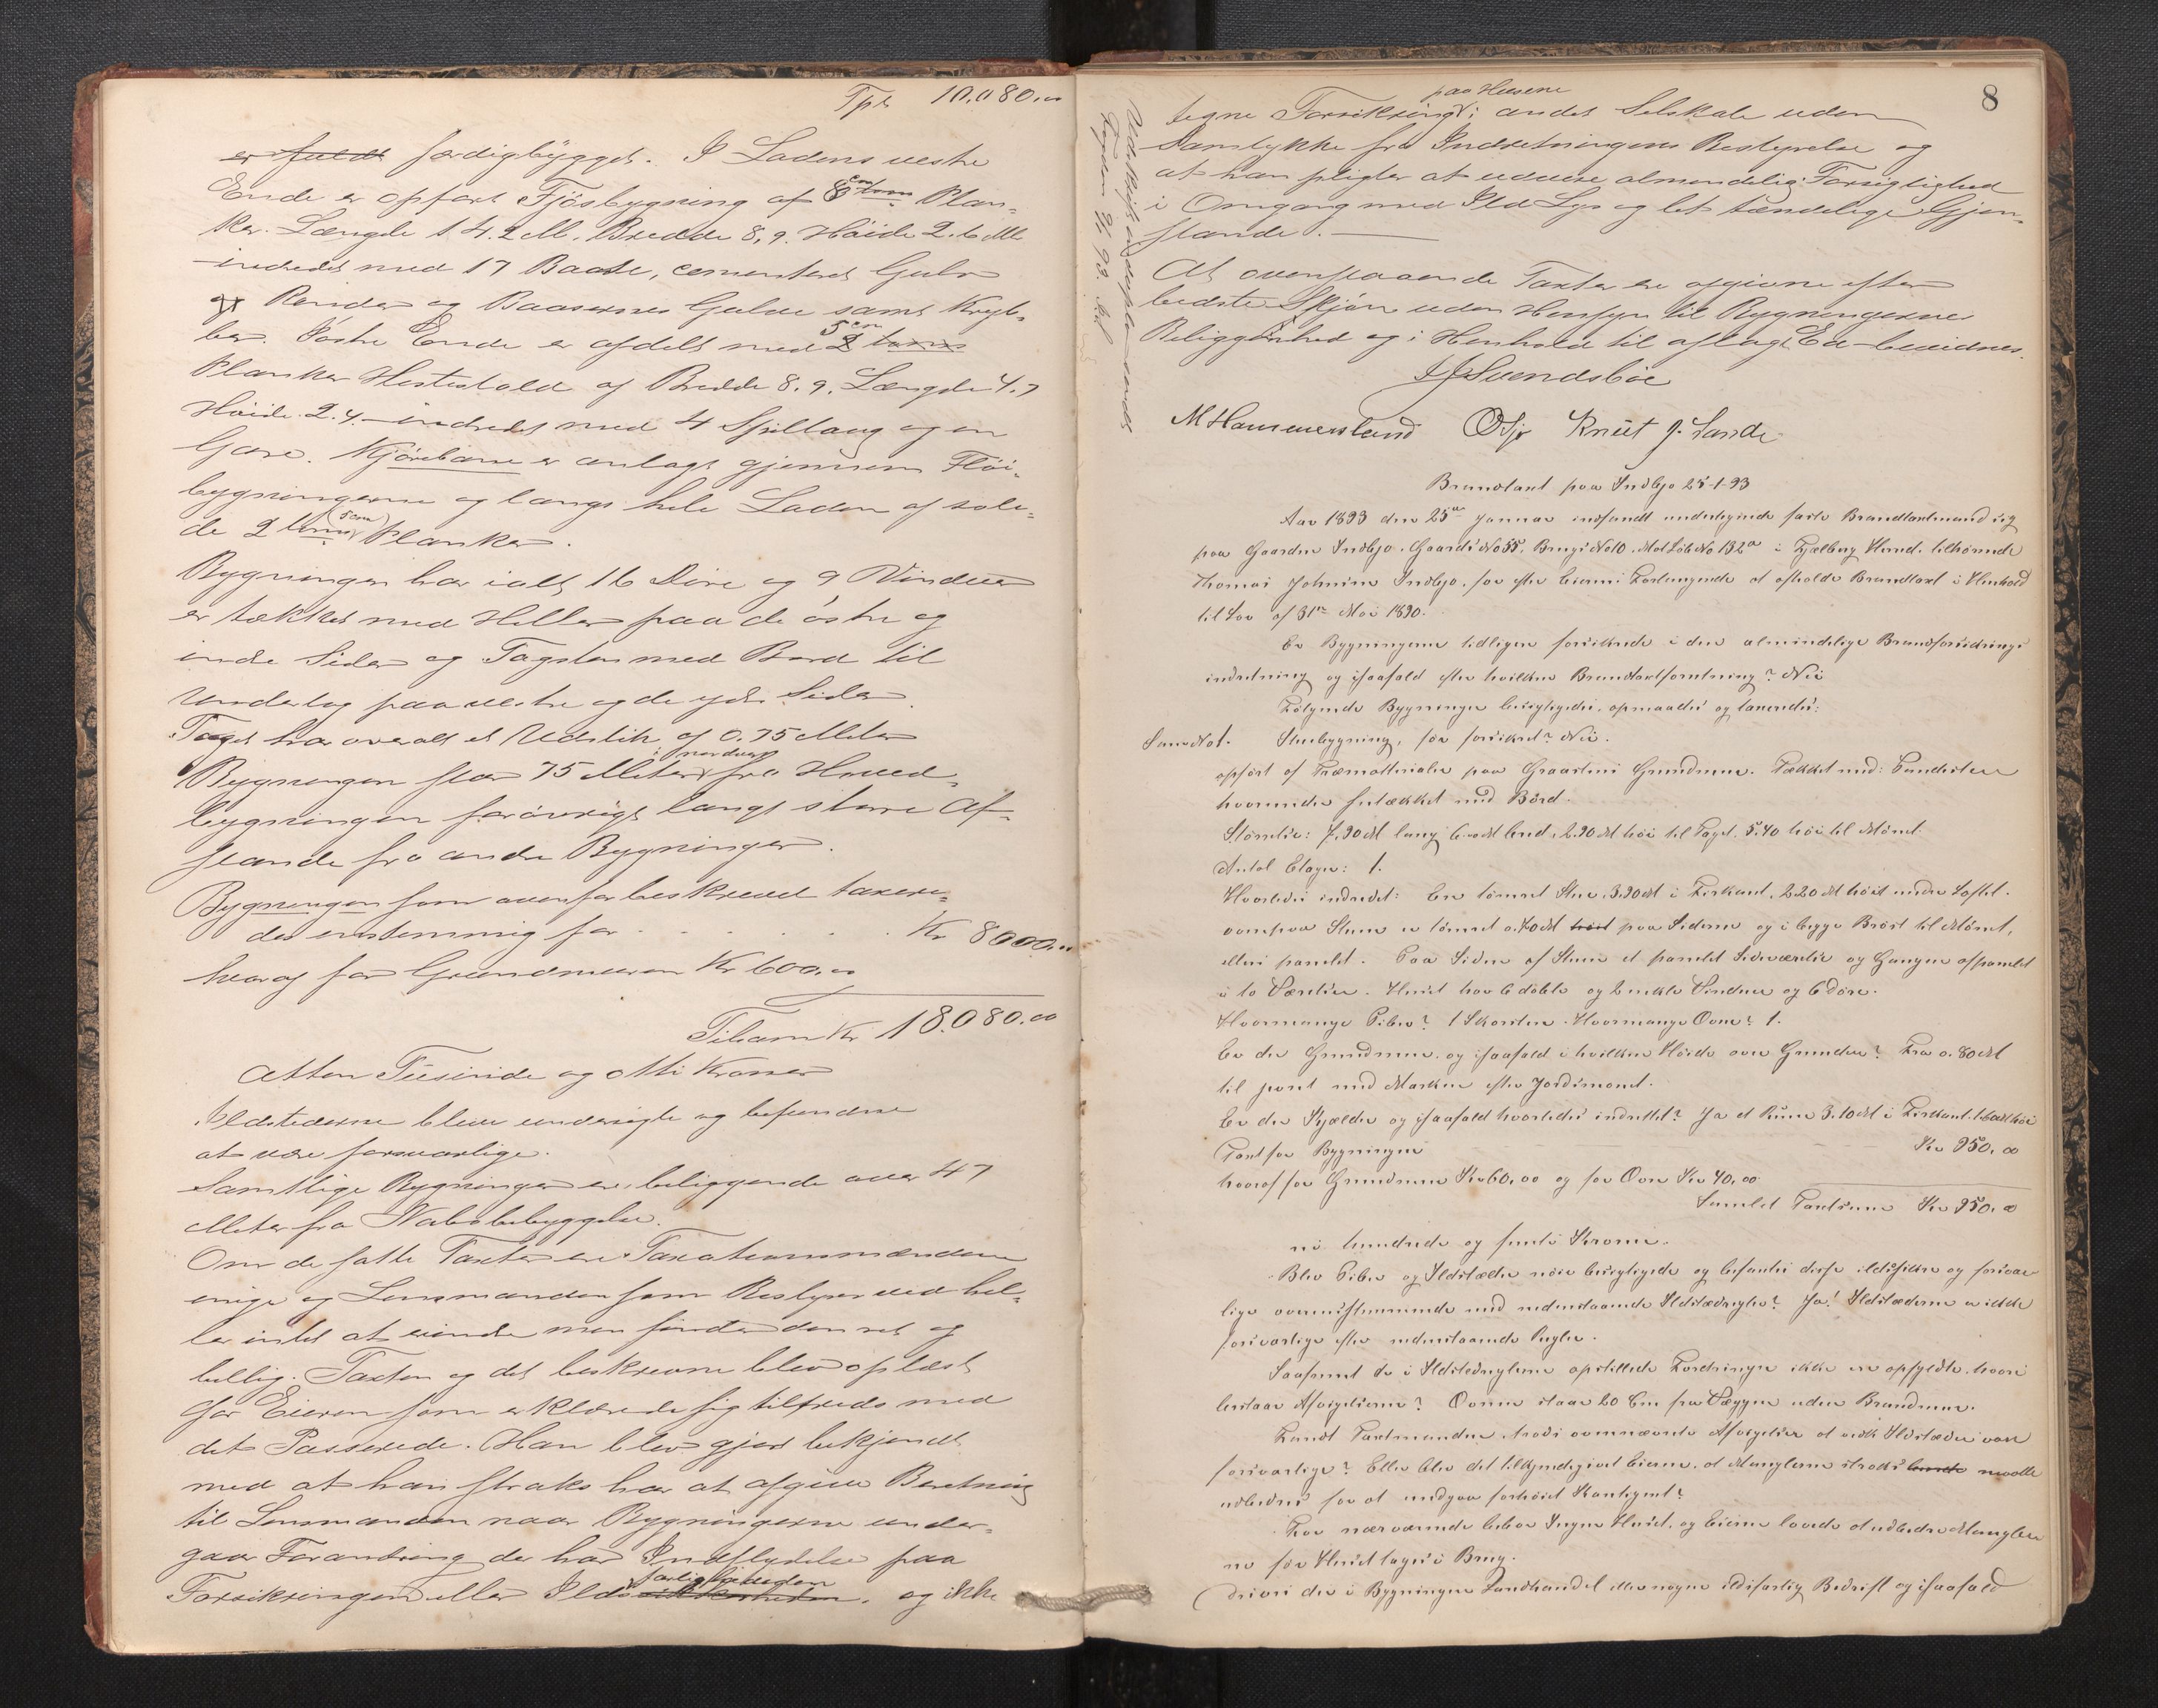 Tpt 10.080.00
er fuldt færdigbygget. I Ladens vestre
Ende er opført Fjösbygning af 8 cm toms Plan-
ker. Længde 14.2 M. Bredde 8,9. Höide 2.6 M
indredet med 17 Baase, cementeret Gulv
og Render og Baasernes Gulve samt Kryb-
ber. I östre Ende er afdelt med 5 cm 2 toms
Planker Hestestald af Bredde 8.9. Længde 4.7
Höide 2.4. indredet med 4 Spiltaug og en
Gare. Kjörebane er anlagt gjennem Flöi-
bygningerne og langs hele Laden af soli-
de 2 toms (5 cm) Planker.
Bygningen har ialt 16 Döre og 9 Vinduer
er tækket med Heller paa de östre og
indre Sider og Tagsten med Bord til
Underlag paa vestre og de ydre Sider.
Taget har overalt et Udstik af 0.75 Meter
Bygningen staar 75 Meter i nordvest fra Hoved-
bygningen forövrigt langt större Af-
stande fra andre Bygninger.
Bygningen som ovenfor beskrevet taxere-
des enstemmig for . . . . . . Kr 8000.00
hvoraf for Grundmuren Kr 600,00
Tilsam Kr 18.080.00
Atten Tusinde og otti Kroner
Ildstederne bleve undersøgte og befundne
at være forsvarlige.
Samtlige Bygninger er beliggende over 47
Meter fra Nabobebyggelse.
Om de satte Taxter ere Taxationsmændene
enige og Lensmanden som Bestyrer ved hel-
ler intet at erindre men finder den ret og
billig. Taxten og det beskrevne blev oplæst
for Eieren som erklærede sig tilfreds med
det Passerede. Han blev gjort bekjendt
med at han straks har at afgive Beretning
til Lensmanden naar Bygningerne under-
gaar Forandring der har Indflydelse paa
Forsikringen eller Ilds farligheden sikkerheden. og ikke
8
tegne Forsikring paa Husene i andet Selskab uden
Samtykke fra Indretningens Bestyrelse og
at han pligter at udvise almindelig Forsigtighed
i Omgang med Ild Lys og let tændelige Gjen-
stande.
At ovenstaaende Taxter ere afgivne efter
bedste Skjön uden Hensyn til Bygningernes
Beliggenhed og i Henhold til aflagt Ed bevidnes.
J J Svendsböe
M Hammersland Knut J. Sande
Udskrift udstedt sendt
Fogden 93.
Brandtaxt paa Indbjo 25-1-93
Aar 1893 den 25de Januar indfandt undertegnede faste Brandtaxtmænd sig
paa Gaarden Indbjo, Gaards No 55, Brugs No 10, Mat Löb No 132a i Fjelberg Herred, tilhörende
Thomas Johnsen Indbjo, for efter Eierens Forlangende at afholde Brandtaxt i Henhold
til Lov af 31te Mai 1890.
Er Bygningerne tidligere forsikrede i den almindelige Brandforsikrings
indretning og isaafald efter hvilken Brandtaxtforretning? Nei
Fölgende Bygninger besigtigedes, opmaaltes og taxeredes:
No 1. Stuebygning, för forsikret? Nei.
opfört af Træmaterialier paa Graastens Grundmur. Tækket med: Pandesten
hvorunder sutækket med Bord.
Störrelse: 7.90 M lang 6.00 M bred, 2.90 M höi til Taget. 5.40 höi til Mönet.
Antal Etager: 1.
Hvorledes indredet: En tömret Stue, 3.90 M i Firkant, 2.20 M höit under Loftet.
ovenpaa Stuen er tömret 0.70 M höit paa Siderne og i begge Bröst til Mönet,
ellers panelet. Paa Siden af Stuen et panelet Sideværelse og Gangen afpanelet
i to Værelser. Huset har 6 dobte og 2 enkle Vinduer og 6 Döre.
Hvormange Piber? 1 Skorsten. Hvormange Ovne? 1.
Er der Grundmur, og isaafald i hvilken Höide over Grunden? Fra 0.80 M
til jevnt med Marken efter Jordsmonet.
Er der Kjælder og isaafald hvorledes indrettet? Ja et Rum 3.10 M i Firkant, 1.60 M höi
Taxt for Bygningen Kr 950.00
hvoraf for Grundmur Kr 60,00 og for Ovn Kr 40,00
Samlet Taxtsum Kr 950.00
ni hundrede og femti Kroner.
Blev Piber og Ildstæder nöie besigtigede og befantes disse ildsikre og forsvar
lige overensstemmende med nedenstaaende Ildstædregler? Ja! Ildstæderne er ikke
forsvarlige efter nedenstaaende Regler.
Saafremt de i Ildstedreglerne opstillede Fordringer ikke er opfyldte, hvori
bestaar Afvigelserne? Ovnen staar 20 Cm fra Væggen uden Brandmur.
Fandt Taxtmændene trods ovennævnte Afvigelser at vedk Ildstæder vare
forsvarlige? Eller blev det tilkyndegivet Eieren, at Manglerne straks burde maatte
udbedres for at undgaa forhöiet Kontingent?
For nærværende bebor Ingen Huset, og Eieren lovede at udbedre Manglen
ne för Huset tages i Brug.
Drives der i Bygningen Landhandel eller nogen ildsfarlig Bedrift og isaafald